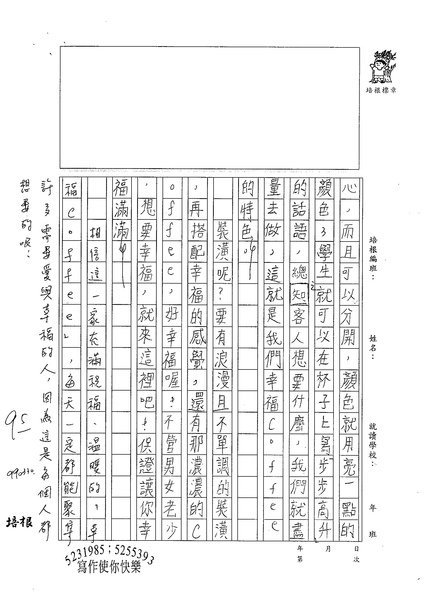 培根標章
培根編班：
姓名：
就讀學校：
年 班
年 月 日
第 次
心，而且可以分開，顏色就用亮一點的
顏色，學生就可以在杯子上寫步步高升
的話語，總知客人想要什麼，我們就盡
量去做，這就是我們幸福Coffee
的特色。
裝潢呢？要有浪漫且不單調的裝潢
，再搭配幸福的感覺，還有那濃濃的C
offee，好幸福喔！不管男女老少
，想要幸福，就來這裡吧！保證讓你幸
福滿滿。
相信這一家充滿祝福、溫暖的「幸
福Coffee」，每天一定都能聚集
許多需要愛與幸福的人，因為這是每個人都
想要的唷！
95
培根
5231985；5255393
寫作使你快樂